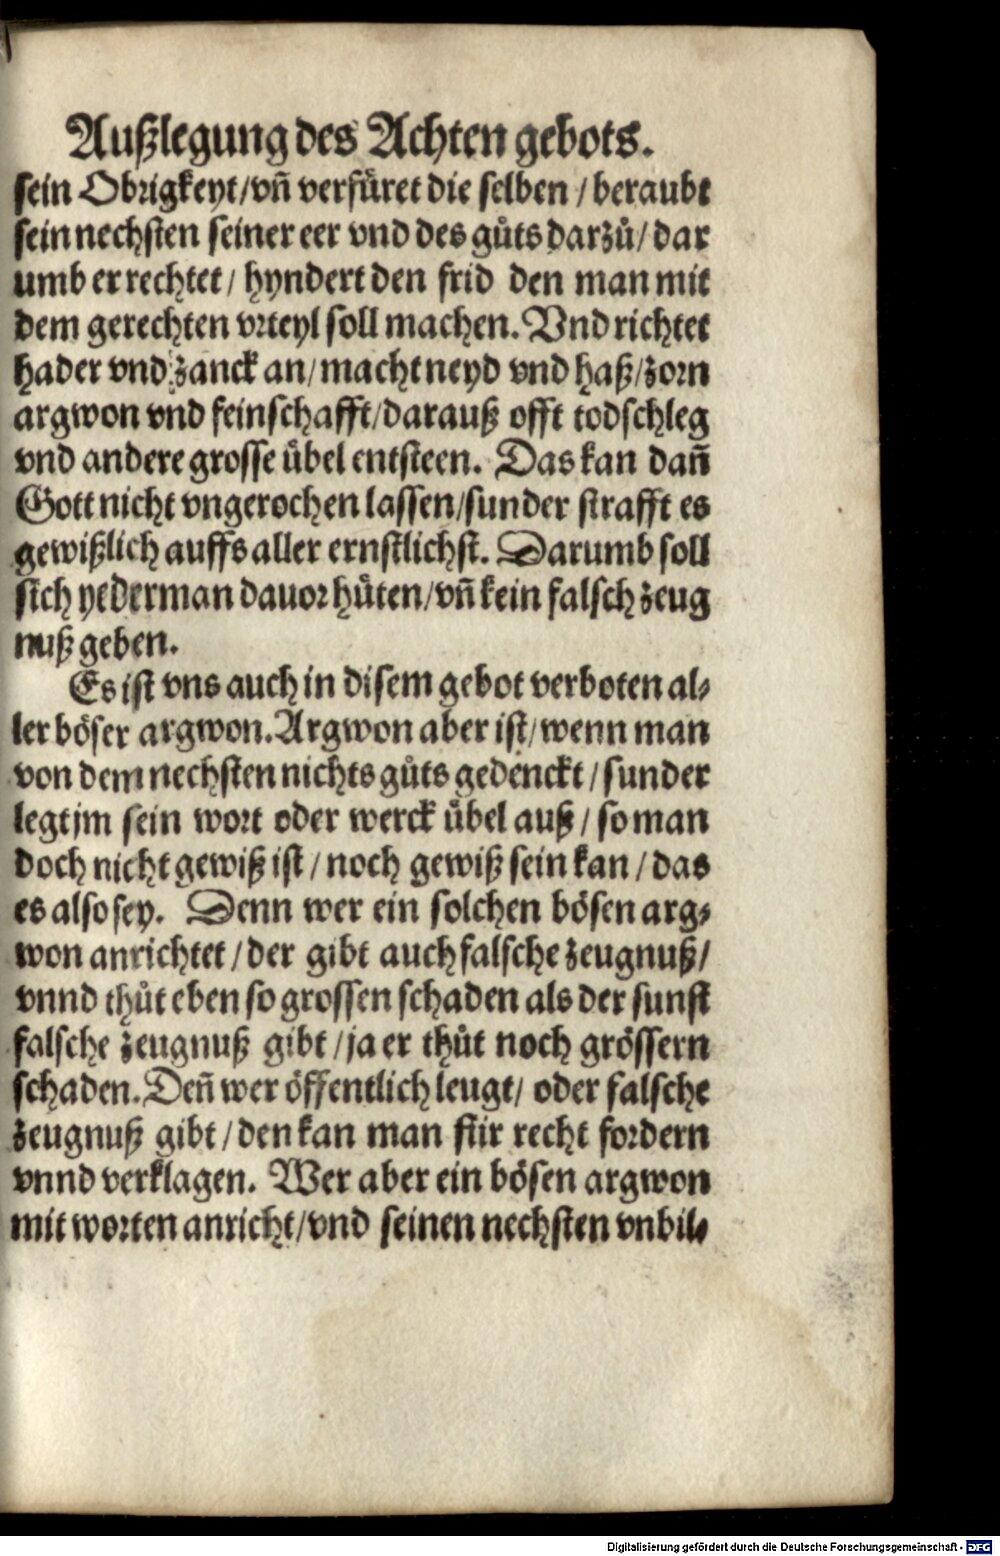 Außlegung des Achten gebots.
sein Obrigkeyt/vñ verfüret die selben / beraubt
sein nechsten seiner eer vnd des gůts darzů/ dar
umb er rechtet / hyndert den frid den man mit
dem gerechten vrteyl soll machen. Vnd richtet
hader vnd zanck an/ macht neyd vnd haß/zorn
argwon vnd feinschafft/darauß offt todschleg
vnd andere grosse übel entsteen. Das kan dañ
Gott nicht vngerochen lassen/sunder strafft es
gewißlich auffs aller ernstlichst. Darumb soll
sich yederman dauor hüten/vñ kein falsch zeug
nuß geben.
Es ist vns auch in disem gebot verboten al⸗
ler böser argwon. Argwon aber ist/ wenn man
von dem nechsten nichts gůts gedenckt / sunder
legt jm sein wort oder werck übel auß / so man
doch nicht gewiß ist / noch gewiß sein kan / das
es also sey. Denn wer ein solchen bösen arg⸗
won anrichtet / der gibt auch falsche zeugnuß/
vnnd thůt eben so grossen schaden als der sunst
falsche zeugnuß gibt / ja er thůt noch grössern
schaden. Deñ wer öffentlich leugt/ oder falsche
zeugnuß gibt / den kan man für recht fordern
vnnd verklagen. Wer aber ein bösen argwon
mit worten anricht/vnd seinen nechsten vnbil⸗
Digitalisierung gefördert durch die Deutsche Forschungsgemeinschaft - DFG